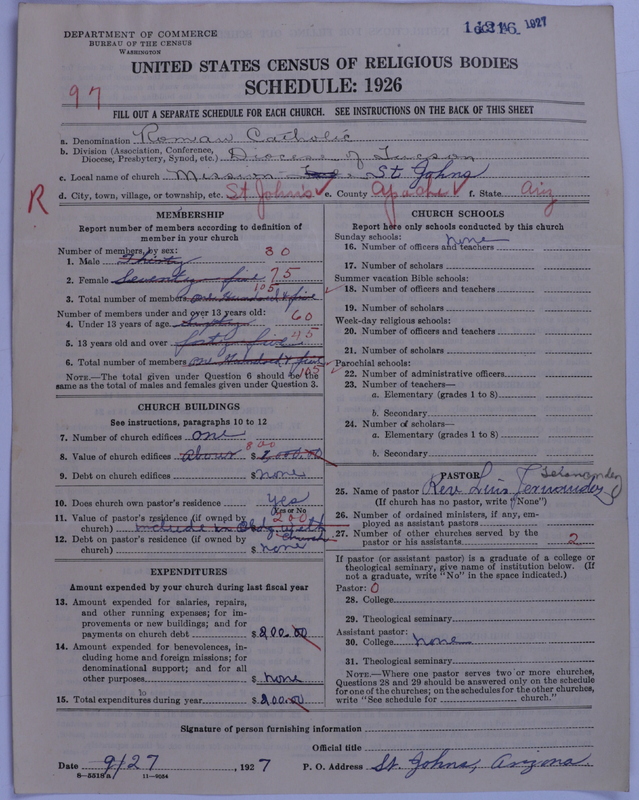 DEPARTMENT OF COMMERCE
BUREAU OF THE CENSUS
WASHINGTON
1927
UNITED STATES CENSUS OF RELIGIOUS BODIES
SCHEDULE: 1926
97
FILL OUT A SEPARATE SCHEDULE FOR EACH CHURCH. SEE INSTRUCTIONS ON THE BACK OF THIS SHEET
a. Denomination Roman Catholic
b. Division (Association, Conference,
Diocese, Presbytery, Synod, etc.) Diocese of Tucson
c. Local name of church Mission St Johns
R
d. City, town, village, or township, etc. St. John's e. County Apache f. State Ariz
MEMBERSHIP
Report number of members according to definition of
member in your church
Number of members, by sex:
1. Male Thirty 30
2. Female Seventy-five 75
3. Total number of members one hundred & five 105
Number of members under and over 13 years old:
4. Under 13 years of age 60
5. 13 years old and over forty five 45
6. Total number of members one hundred & five 105
NOTE.—The total given under Question 6 should be the
same as the total of males and females given under Question 3.
CHURCH BUILDINGS
See instructions, paragraphs 10 to 12
7. Number of church edifices one
8. Value of church edifices about 800 $
9. Debt on church edifices $ none
10. Does church own pastor's residence Yes
Yes or No
11. Value of pastor's residence (if owned by
church) include in Bldg with church 200
12. Debt on pastor's residence (if owned by
church) $ none
EXPENDITURES
Amount expended by your church during last fiscal year
13. Amount expended for salaries, repairs,
and other running expenses; for im-
provements or new buildings; and for
payments on church debt $ 200.00
14. Amount expended for benevolences, in-
cluding home and foreign missions; for
denominational support; and for all
other purposes $ none
15. Total expenditures during year $ 200.00
CHURCH SCHOOLS
Report here only schools conducted by this church
Sunday schools:
16. Number of officers and teachers none
17. Number of scholars
Summer vacation Bible schools:
18. Number of officers and teachers
19. Number of scholars
Week-day religious schools:
20. Number of officers and teachers
21. Number of scholars
Parochial schools:
22. Number of administrative officers
23. Number of teachers—
a. Elementary (grades 1 to 8)
b. Secondary
24. Number of scholars—
a. Elementary (grades 1 to 8)
b. Secondary
PASTOR
25. Name of pastor Rev Luis Fernandez
(If church has no pastor, write "None")
26. Number of ordained ministers, if any, em-
ployed as assistant pastors
27. Number of other churches served by the
pastor or his assistants 2
If pastor (or assistant pastor) is a graduate of a college or
theological seminary, give name of institution below. (If
not a graduate, write "No" in the space indicated.)
Pastor: 0
28. College
29. Theological seminary
Assistant pastor:
30. College none
31. Theological seminary
NOTE.—Where one pastor serves two or more churches,
Questions 28 and 29 should be answered only on the schedule
for one of the churches; on the schedules for the other churches,
write "See schedule for church."
Signature of person furnishing information
Official title
Date 9/27, 1927 P. O. Address St Johns, Arizona
8—5518a 11—9054